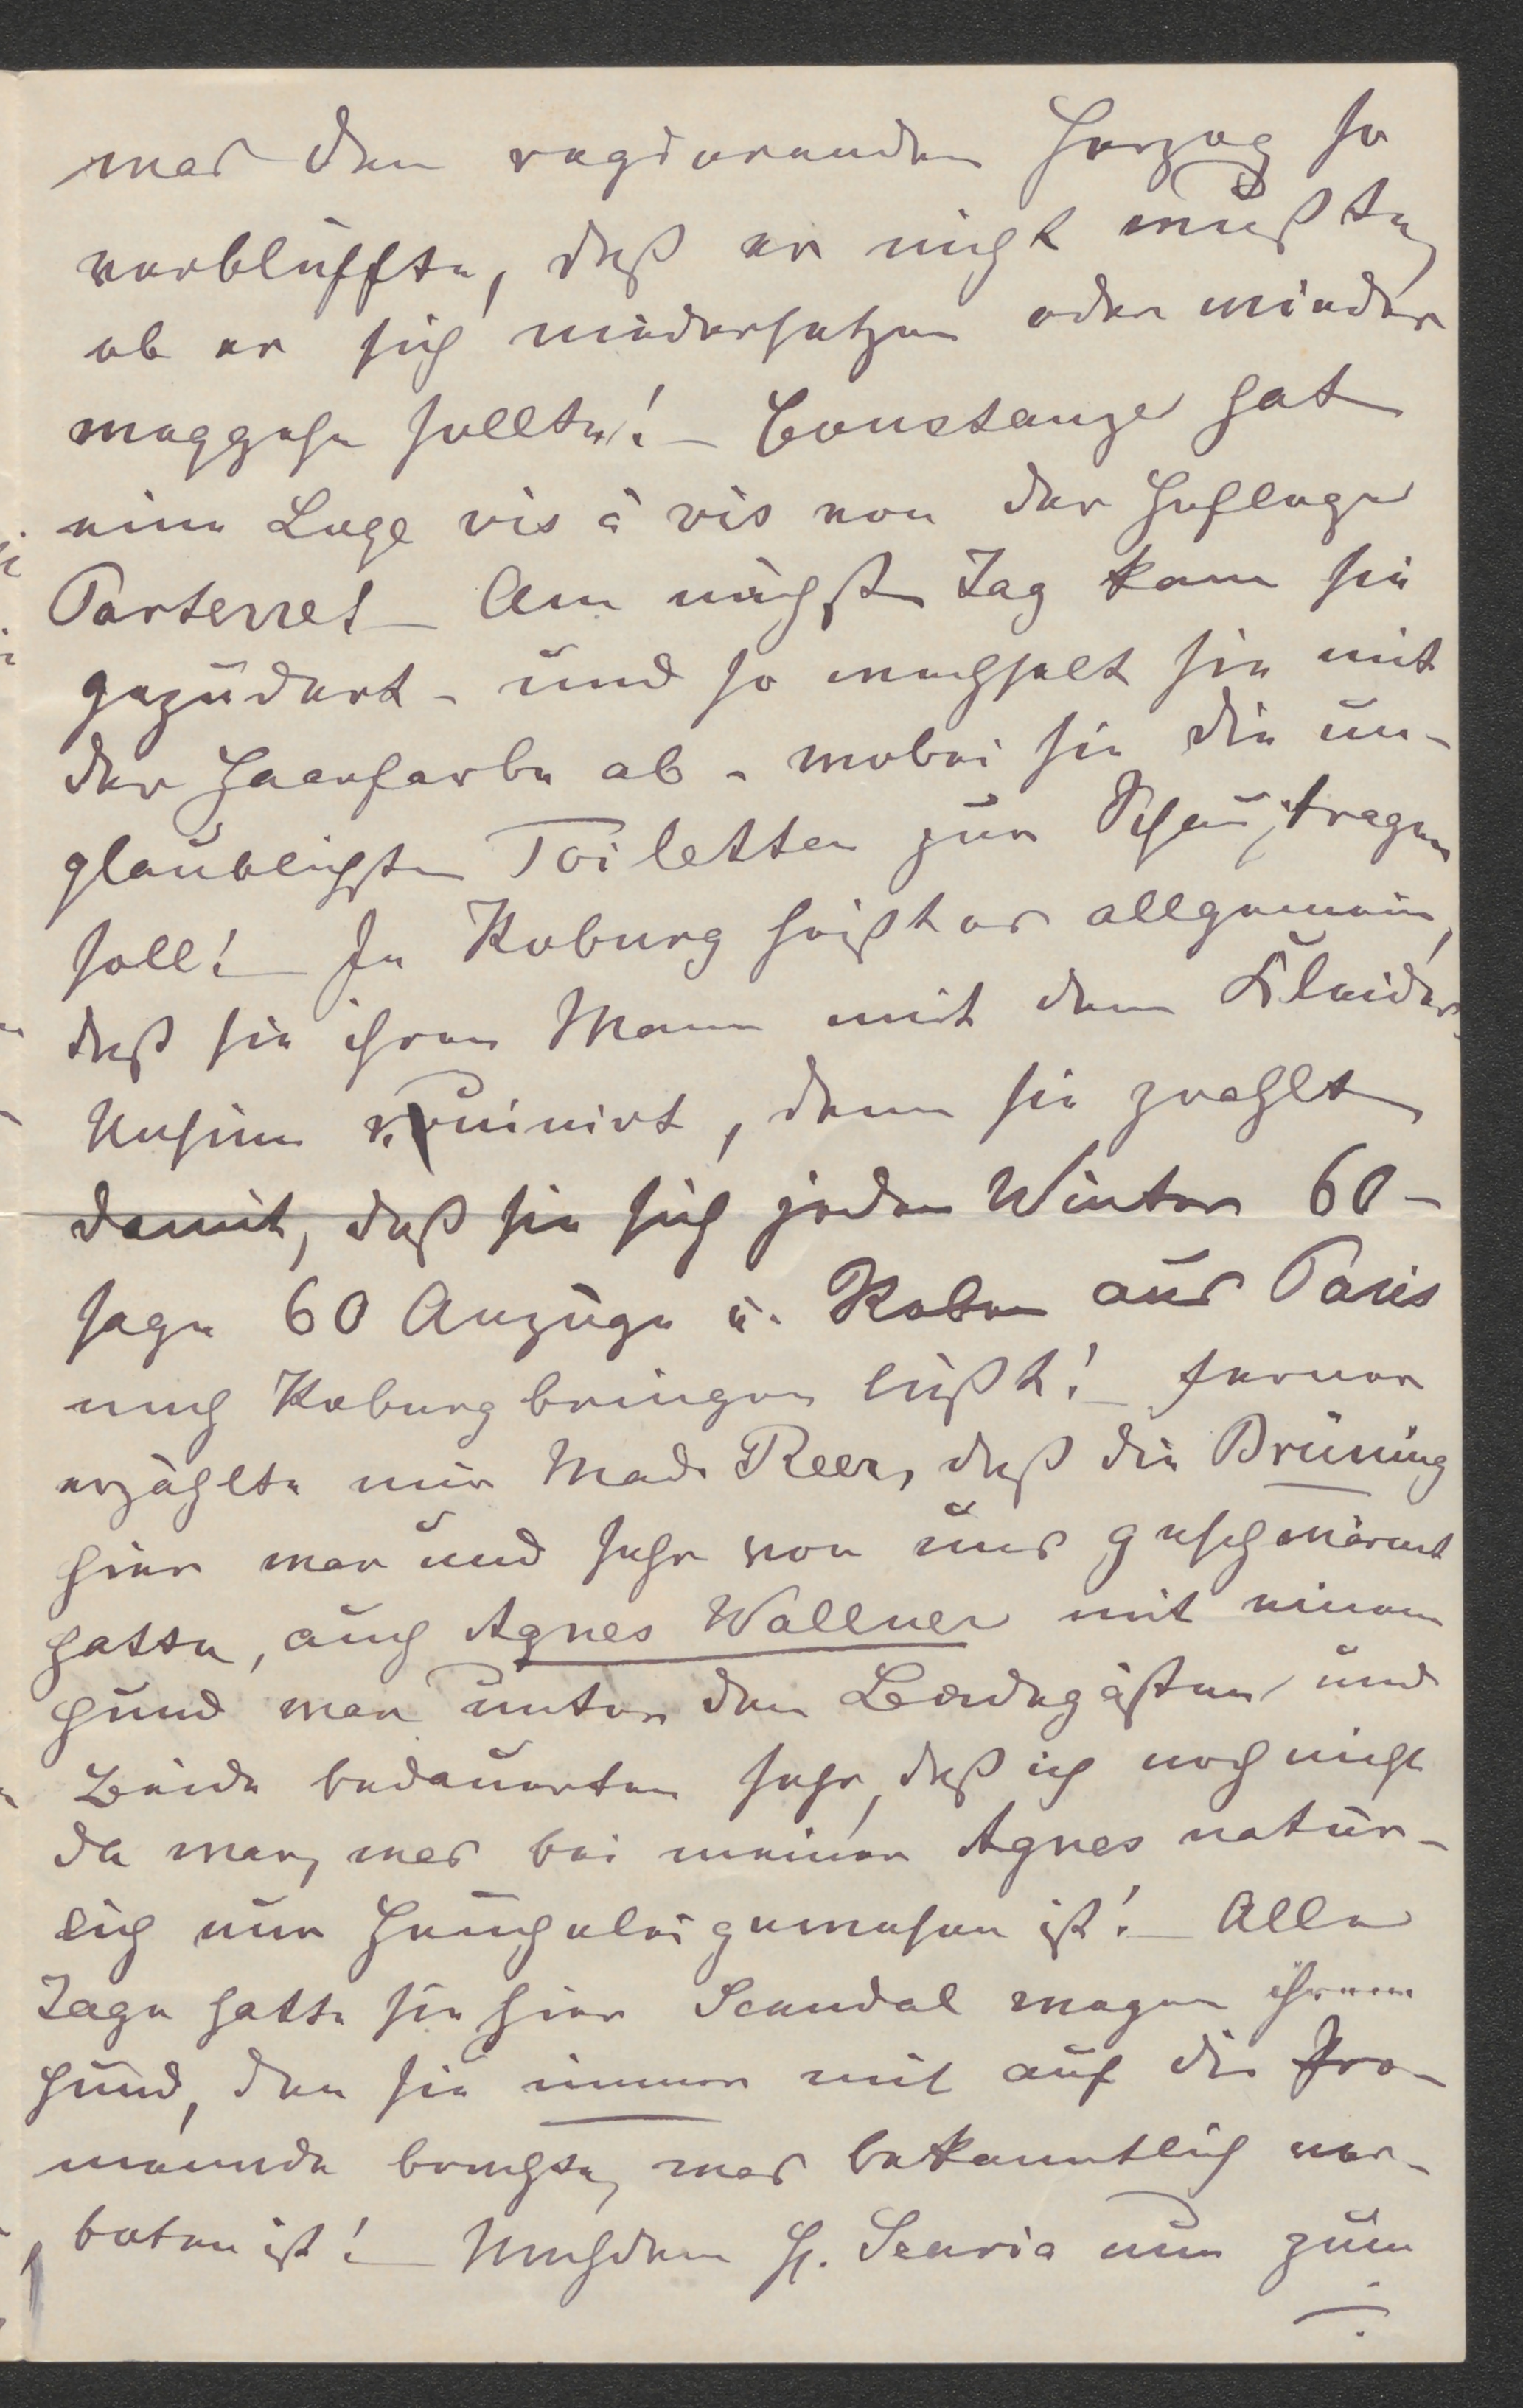 was den regierenden Herzog so
verblüffte, daß er nicht wußte,
ob er sich niedersetzen oder wieder
weggehe sollte! – Constanze hat
eine Loge vis à vis von der Hofloge
Parterre! – Am nächst Tag kam sie
gepudert – und so wechselt sie mit
der Haarfarbe ab – wobei sie die un-
glaublichsten Toiletten zur Schau tragen
soll! – In Koburg heißt es allgemein,
daß sie ihren Mann mit dem Kleider-
Unsinn ruinirt, denn sie prahlt
damit, daß sie sich jeden Winter 60 –
sage 60 Anzüge u. Roben aus Paris
nach Koburg bringen läßt! – Ferner
erzählte mir Mad. Reer, daß die Brüning
hier war und sehr von uns geschwärmt
hatte, auch Agnes Wallner mit einem
Hund war unter den Badegästen und
Beide bedauerten sehr, daß ich noch nicht
da war, was bei meiner Agnes natür-
lich nur Heuchelei gewesen ist! – Alle
Tage hatte sie hier Scandal wegen ihrem
Hund, den sie immer mit auf die Pro-
menade brachte, was bekanntlich ver-
boten ist! – Nachdem H. Scaria nun zum